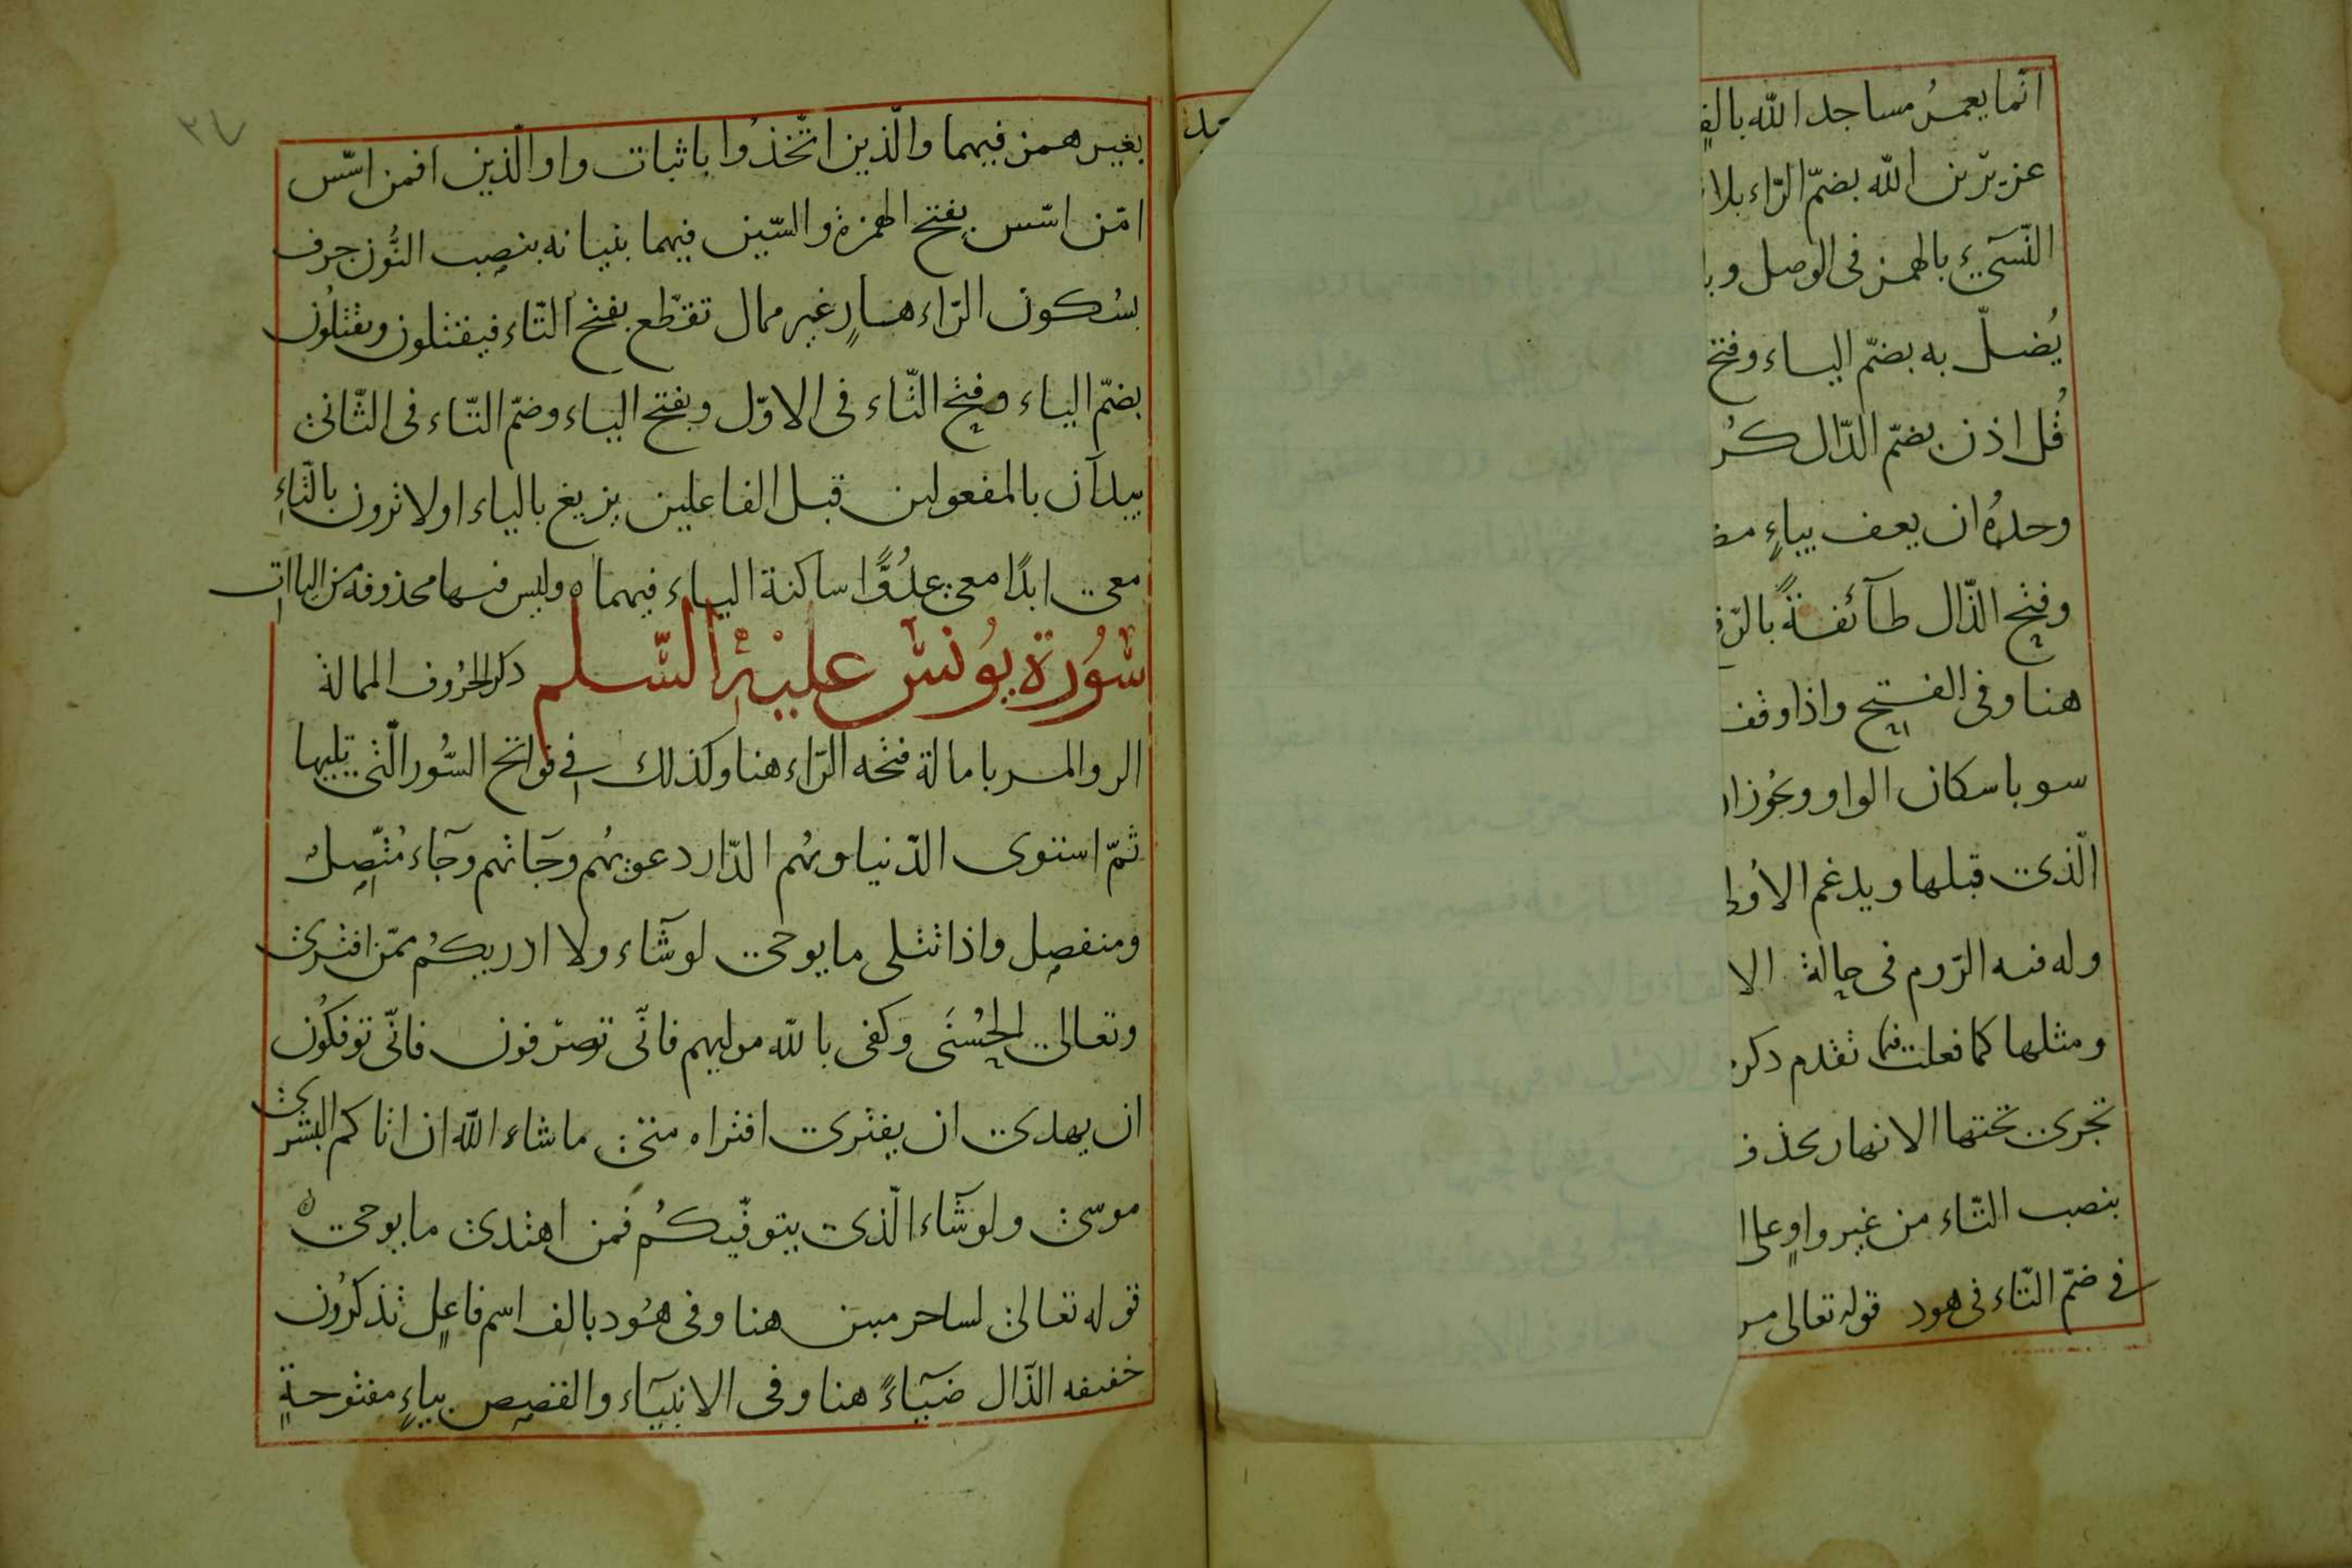 انّما يعمرُ مساجد الله بالف
عزيرُ بن الله بضمّ الرّاء بلا
النّسىء بالهمز فى الوصل وبا
يُضلّ به بضمّ الياء وفتح
قُل اذن بضمّ الذّال كُر
وحدهُ ان يعف بياءٍ مض
وفتح الذّال طآئفةً بالرّف
هنا وفى الفتح واذا وقف
سو باسكان الواو ويجُوز ا
الّذى قبلها ويدغم الاُولى
وله فيه الرّوم فى حالة الا
ومثلها كما فعلت فيما تقدم ذكر
تجرى تحتها الانهار بحذف
بنصب التّاء من غير واوٍ على ا
فى ضمّ التّاء فى هود قوله تعالى مر
بغير همز فيهما والّذين اتّخذُوا باثبات واو الّذين افمن اسّس
امّن اسّس بفتح الهمزة والسّين فيهما بنيانه بنصب النُّون جرف
بسُكون الرّاء هارٍ غير ممال تقطّع بفتح التّاء فيقتلون ويقتلُون
بضمّ الياء وفتح التّاء فى الاوّل وبفتح الياء وضمّ التّاء فى الثّانى
يبدآن بالمفعولين قبل الفاعلين يزيغ بالياء اولا ترون بالتّاءِ
معى ابدًا معى عدُوًّا ساكنة الياء فيهماه وليس فيها محذوفة من الياات
سُورة يُونس عليه السّلم ذكر الحرُوف الممالة
الر والمر بامالة فتحه الرّاء هنا وكذلك فى فواتح السُّور الّتى تليها
ثمّ استوى الدّنيا ويهُم الدّار دعويهُم وجَاتهم وجَآء مُتّصِل
ومنفصِل واذا تتلى ما يوحى لو شآء ولا ادريكُم ممّن افترى
وتعالى الحُسنَى وكفى بالله موليهم فانّى تصرّفون فانّى توفكُون
ان يهدى ان يفترى افتراه متى ما شاء الله ان اتاكم البشرى
موسى ولو شَآء الّذى يتوفّيكُم فمن اهتدى ما يوحىه
قوله تعالى لساحر مبين هنا وفى هُود بالف اسم فاعِل تذكرُون
خفيفه الذّال ضيَآءً هنا وفى الانبيَآء والقصص بياءٍ مفتوحةٍ